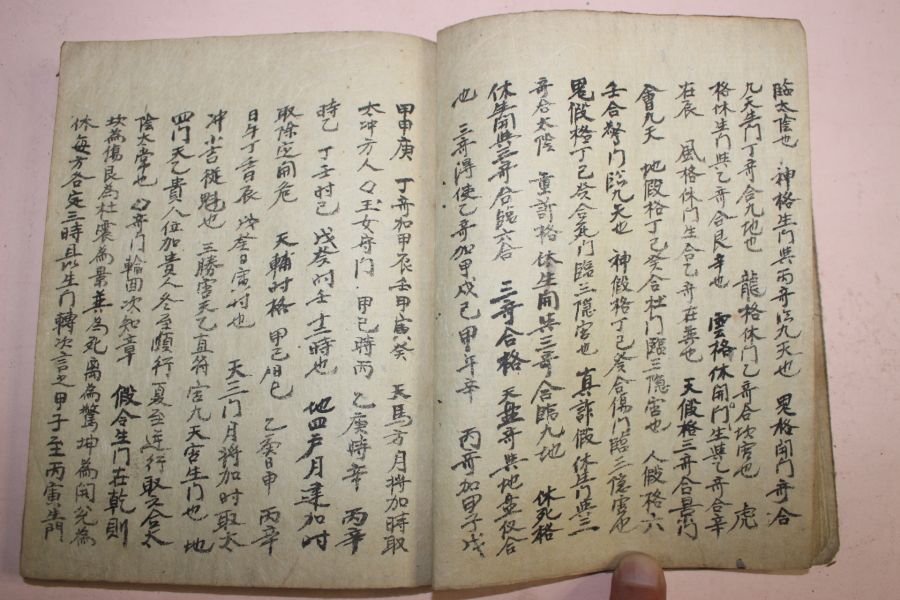 臨太陰也 神格生門與丙奇臨九天也 鬼格開門奇合
九天生門丁奇合九地也 龍格休門乙奇合坎宮也 虎
格休生門與乙奇合艮辛也 雲格休開門生與乙奇合辛
在辰 風格休門生合乙奇在巽也 天假格三奇合景門
會九天 地假格丁己癸合杜門臨三隱宮也 人假格六
壬合驚門臨九天也 神假格丁己癸合傷門臨三隱宮也
鬼假格丁己癸合死門臨三隱宮也 真詐假休生門與三
奇合太陰 重詐格休生開與三奇合臨九地 休死格
休生開與三奇合臨六合 三奇合格 天盤奇與地盤儀合
也 三奇得使乙奇加甲戌己甲午辛 丙奇加甲子戊
甲申庚 丁奇加甲辰壬甲寅癸 天馬方月將加時取
太冲方人 玉女守門 甲己時丙 乙庚時辛 丙辛
時乙 丁壬時己 戊癸時壬十二時也 地四戶月建加時
取除定開危 天輔時格 甲己日巳 乙庚日申 丙辛
日午丁壬日辰 戊癸日寅時也 天三門月將加時取太
冲小吉從魁也 三勝宮天乙直符宮九天宮生門也 地
四門天乙貴人位加貴人冬至順行夏至逆行取六合太
陰太常也 奇門輪回次知章 假令生門在乾則
坎為傷艮為杜震為景巽為死离為驚坤為開兌為
休每方各定三時長生門轉次言之甲子至丙寅生門